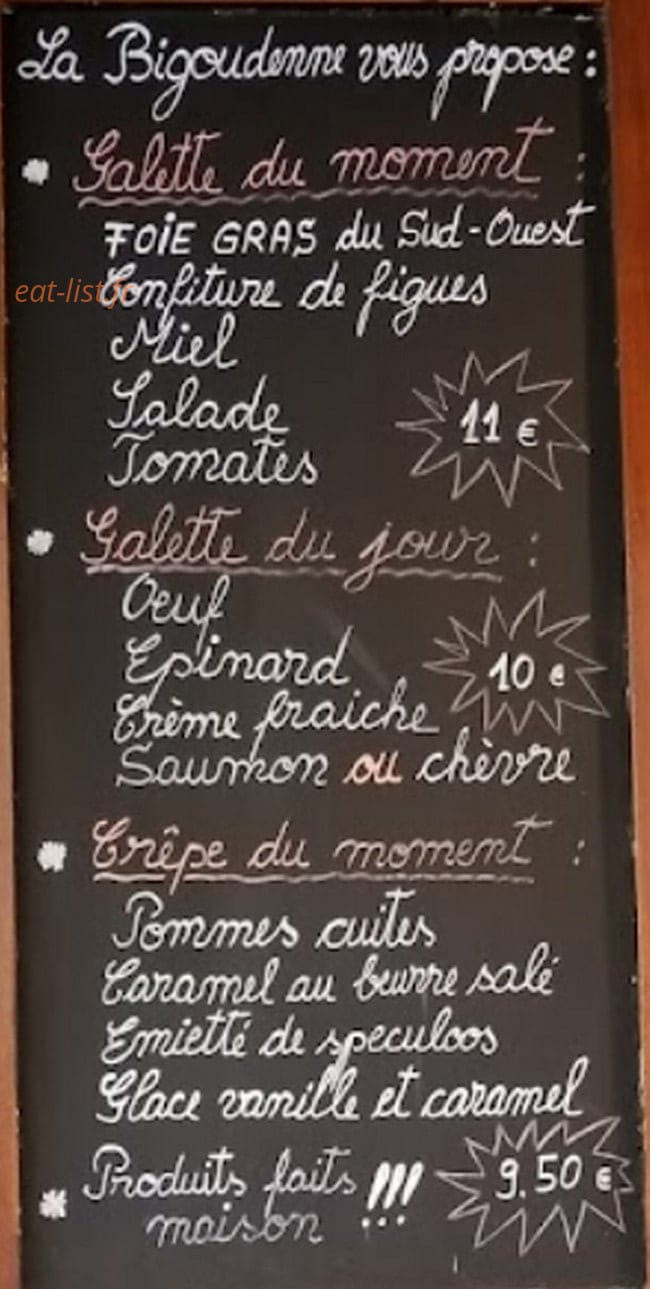 La Bigoudenne vous propose :
Galette du moment :
FOiE GRAS du Sud-Ouest
eat-list.fr
Confiture de figues
Miel
Salade
Tomates
11 €
Galette du jour :
Oeuf
Epinard
10 €
Crème fraiche
Saumon ou chèvre
Crêpe du moment :
Pommes cuites
Caramel au beurre salé
Emietté de speculoos
Glace vanille et caramel
Produits faits
maison !!!
9.50 €